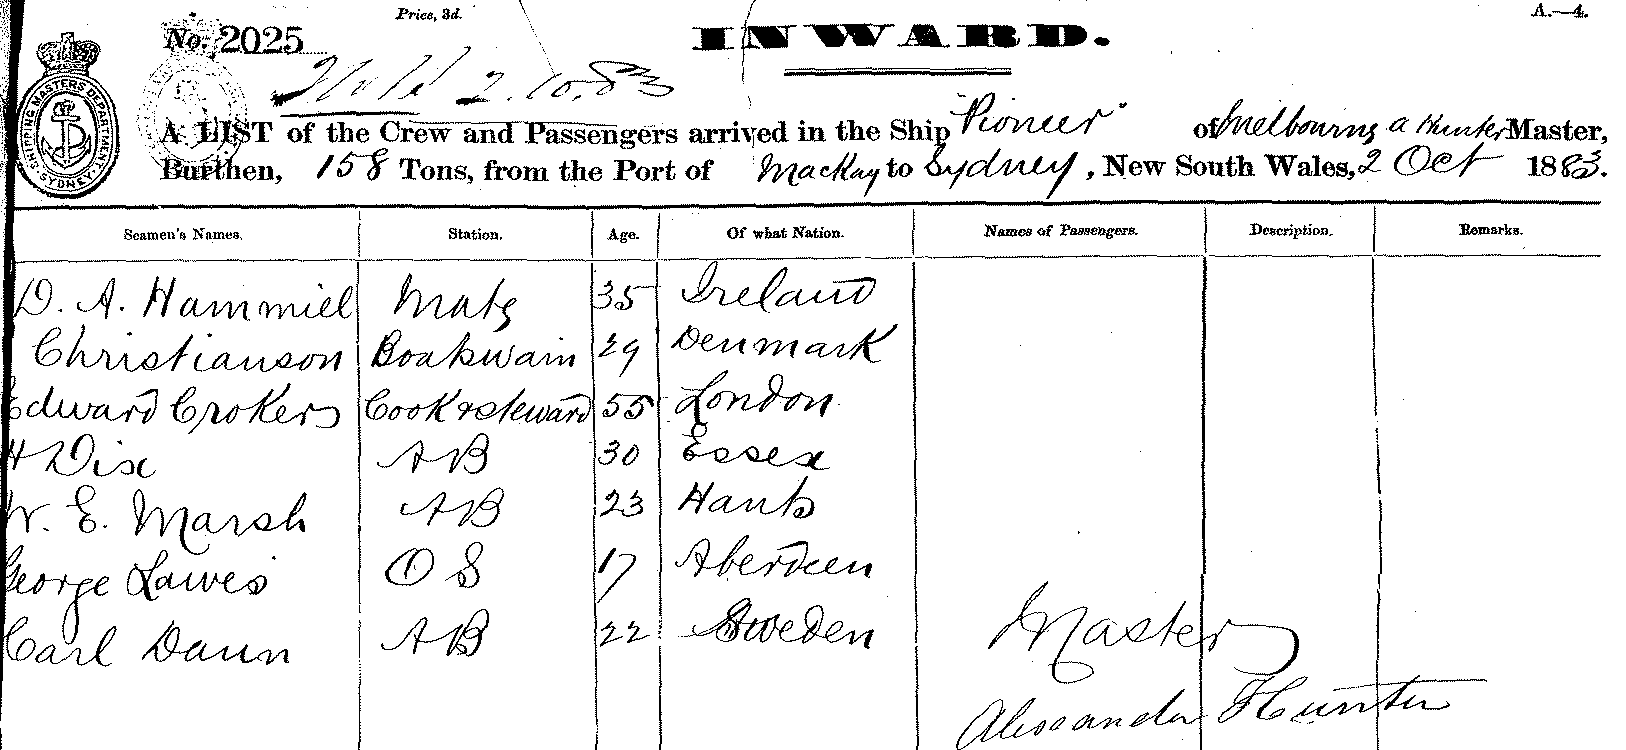 Price, 3d.
A.—4.
No. 2025
INWARD.
2.10.83
A LIST of the Crew and Passengers arrived in the Ship "Pioneer" of Melbourne A Hunter Master,
Burthen, 158 Tons, from the Port of Mackay to Sydney, New South Wales, 2 Oct 1883.
SHIPPING MASTERS DEPARTMENT SYDNEY
Seamen's Names. Station. Age. Of what Nation. Names of Passengers. Description. Remarks.
D. A. Hammiel Mate 35 Ireland
Christianson Boatswain 29 Denmark
Edward Crokers Cook & steward 55 London
H Dix AB 30 Essex
W. E. Marsh AB 23 Hants
George Lawes O S 17 Aberdeen
Carl Daun AB 22 Sweden
Master
Alexander Hunter